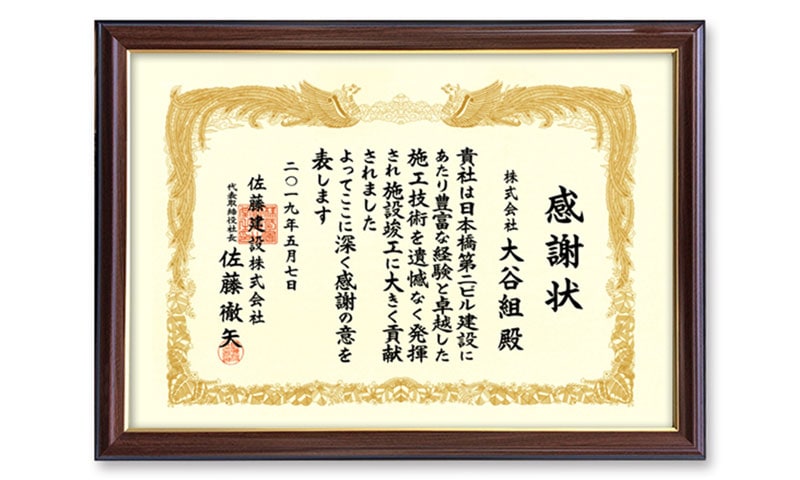 感謝状
株式会社 大谷組 殿
貴社は日本橋第二ビル建設に
あたり豊富な経験と卓越した
施工技術を遺憾なく発揮
され施設竣工に大きく貢献
されました
よってここに深く感謝の意を
表します
二〇一九年五月七日
佐藤建設株式会社
代表取締役社長 佐藤徹矢